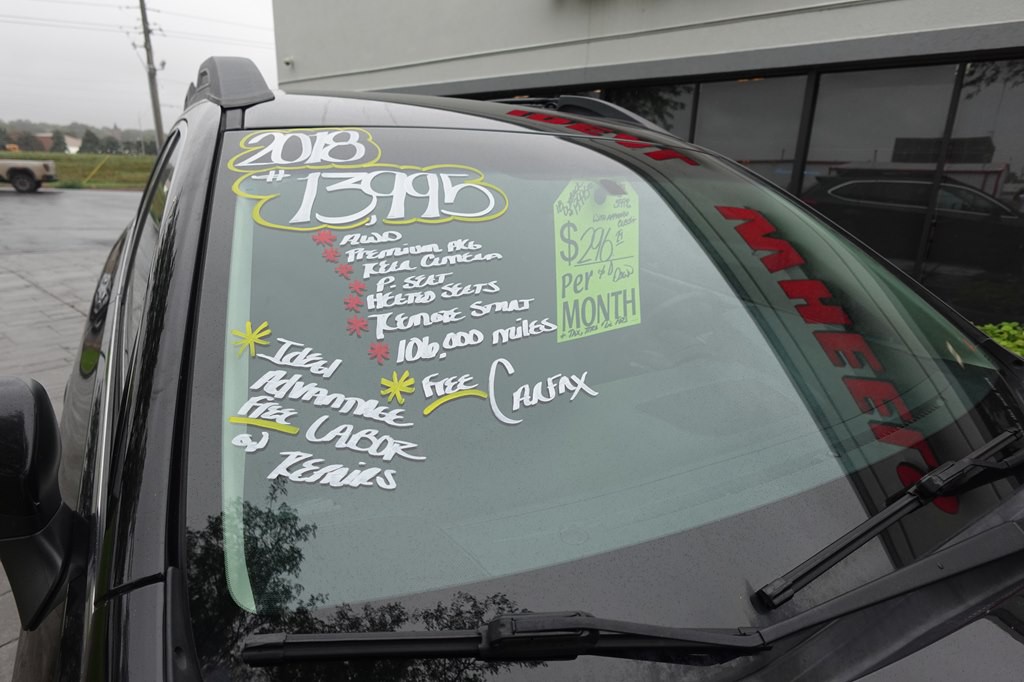 2018
$13,995
* AWD
* Premium PKG
* Rear Camera
* P. Seat
* Heated Seats
* Remote Start
* 106,000 miles
* Ideal
Advantage
Free LABOR
w/
Repairs
* Free CARFAX
$296
per
MONTH
WHEEL